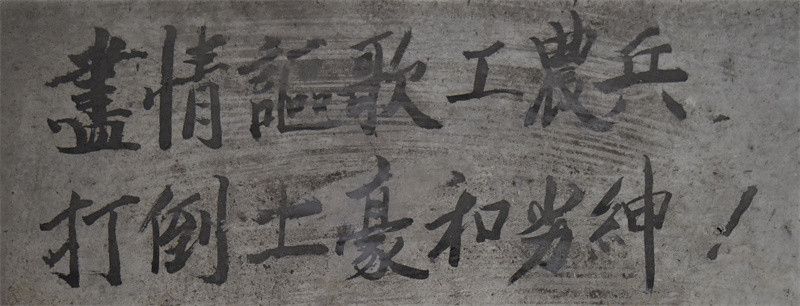 盡情謳歌工農兵、
打倒土豪和劣紳！